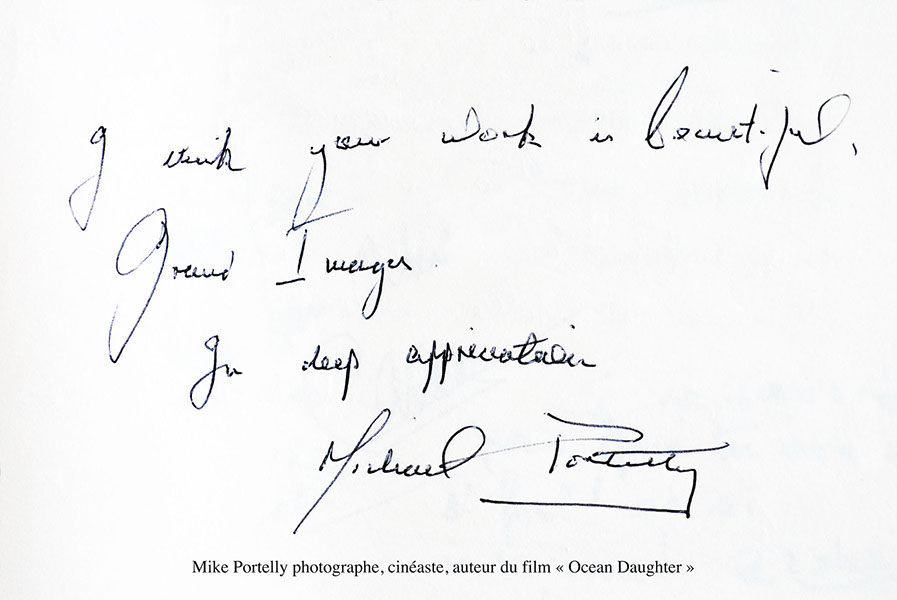 I think your work is beautiful,
Grand Images.
In deep appreciation
Michael Portelly
Mike Portelly photographe, cinéaste, auteur du film « Ocean Daughter »